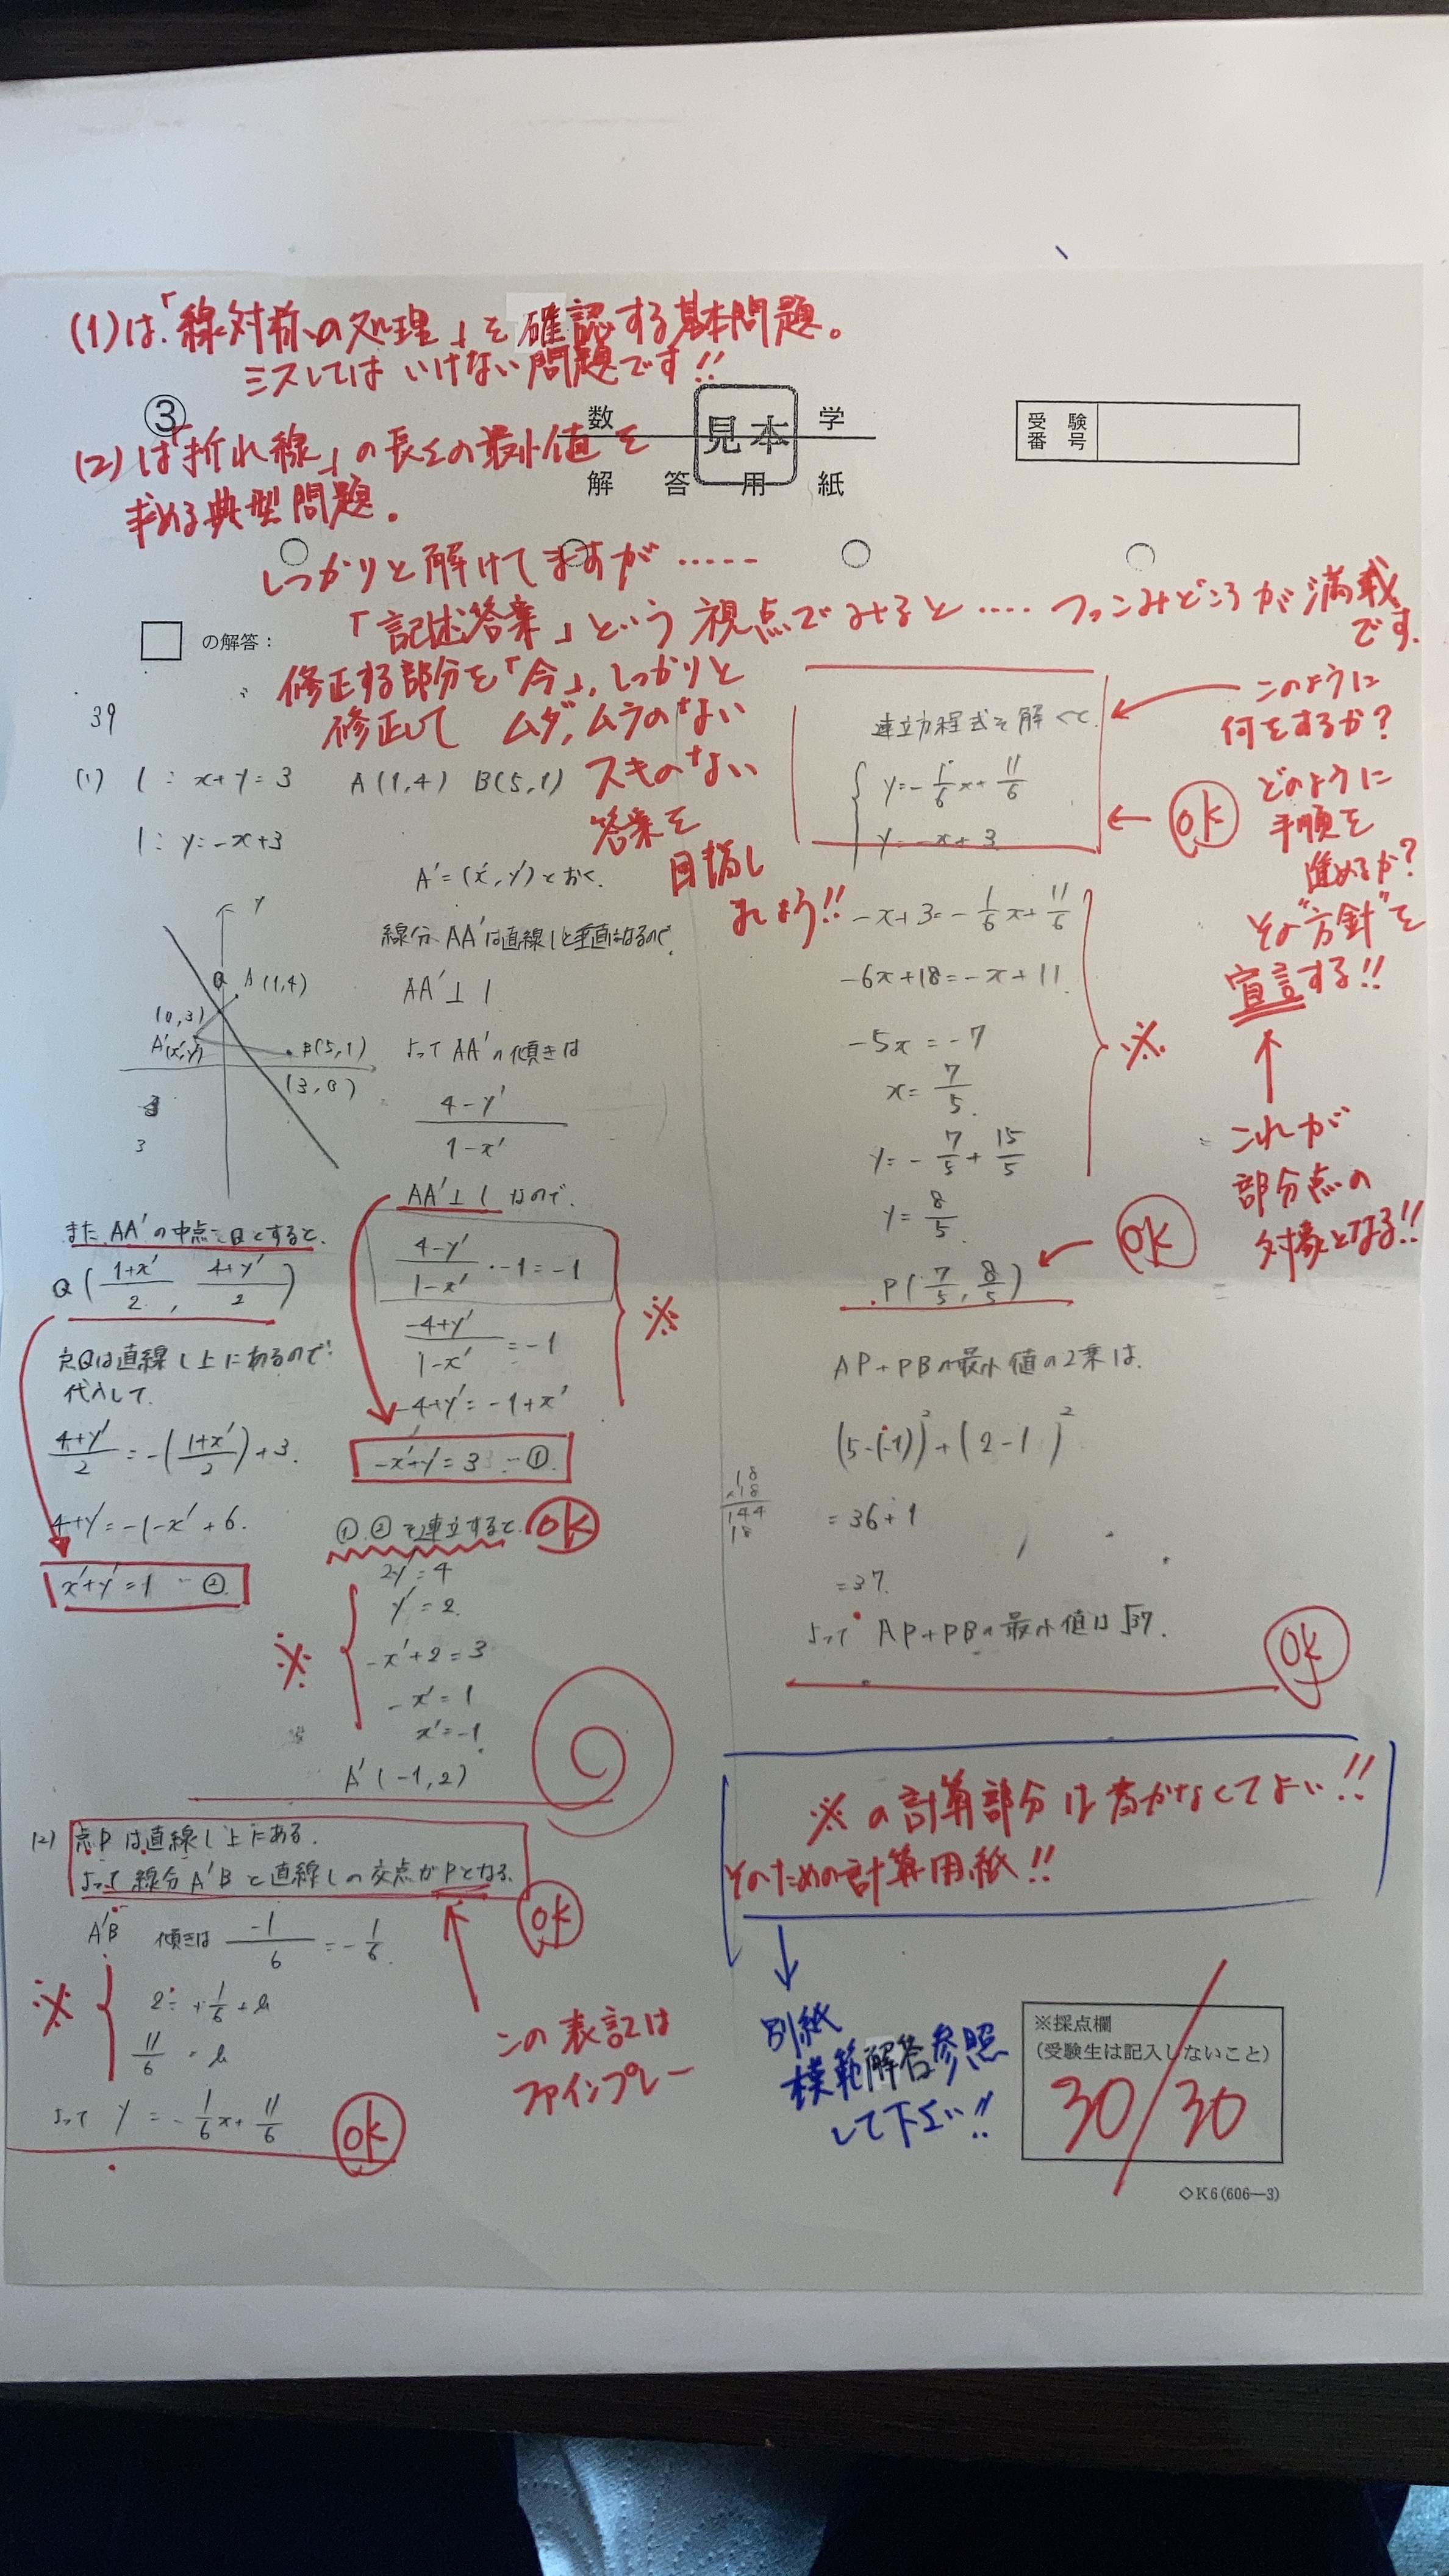 (1)は「線対称の処理」を確認する基本問題。
ミスしてはいけない問題です!!
③
数 見本 学
解答用紙
受験番号
(2)は「折れ線」の長さの最小値を
求める典型問題。
しっかりと解けてますが……
「記述答案」という視点でみると…. ツッコみどころが満載
です.
□ の解答:
修正する部分を「今」,しっかりと
修正して ムダ,ムラのない
スキのない
答案を
目指し
ましょう!!
39
(1) l : x+y=3 A(1,4) B(5,1)
l : y=-x+3
A'=(x',y')とおく.
線分AA'は直線lと垂直になるので.
AA'⊥l
よってAA'の傾きは
4-y'/1-x'
y
Q A(1,4)
(0,3)
A'(x',y')
B(5,1)
(3,0)
3
3
AA'⊥l なので.
4-y'/1-x'・-1=-1
-4+y'/1-x'=-1
-4+y'=-1+x'
-x'+y'=3 …①
※
また AA'の中点をQとすると.
Q(1+x'/2, 4+y'/2)
点Qは直線l上にあるので
代入して.
4+y'/2=-(1+x'/2)+3.
4+y'=-1-x'+6.
x'+y'=1 …②
①,②を連立すると. OK
2y'=4
y'=2.
-x'+2=3
-x'=1
x'=-1.
※
A'(-1,2)
(2) 点Pは直線l上にある.
よって線分A'Bと直線lの交点がPとなる.
OK
A'B 傾きは -1/6=-1/6.
2=+1/6+b
11/6=b
※
よって y=-1/6x+11/6
OK
この表記は
ファインプレー
連立方程式を解くと.
y=-1/6x+11/6
y=-x+3
OK
-x+3=-1/6x+11/6
-6x+18=-x+11.
-5x=-7
x=7/5.
y=-7/5+15/5
y=8/5.
※
P(7/5, 8/5)
OK
このように
何をするか?
どのように
手順を
進めるか?
その"方針"を
宣言する!!
これが
部分点の
対象となる!!
AP+PBの最小値の2乗は.
(5-(-1))²+(2-1)²
=36+1
=37.
18
×18
144
18
よって AP+PBの最小値は√37.
OK
※の計算部分は書かなくてよい!!
そのための計算用紙!!
別紙
模範解答参照
して下さい!!
※採点欄
(受験生は記入しないこと)
30/30
◇K6(606―3)